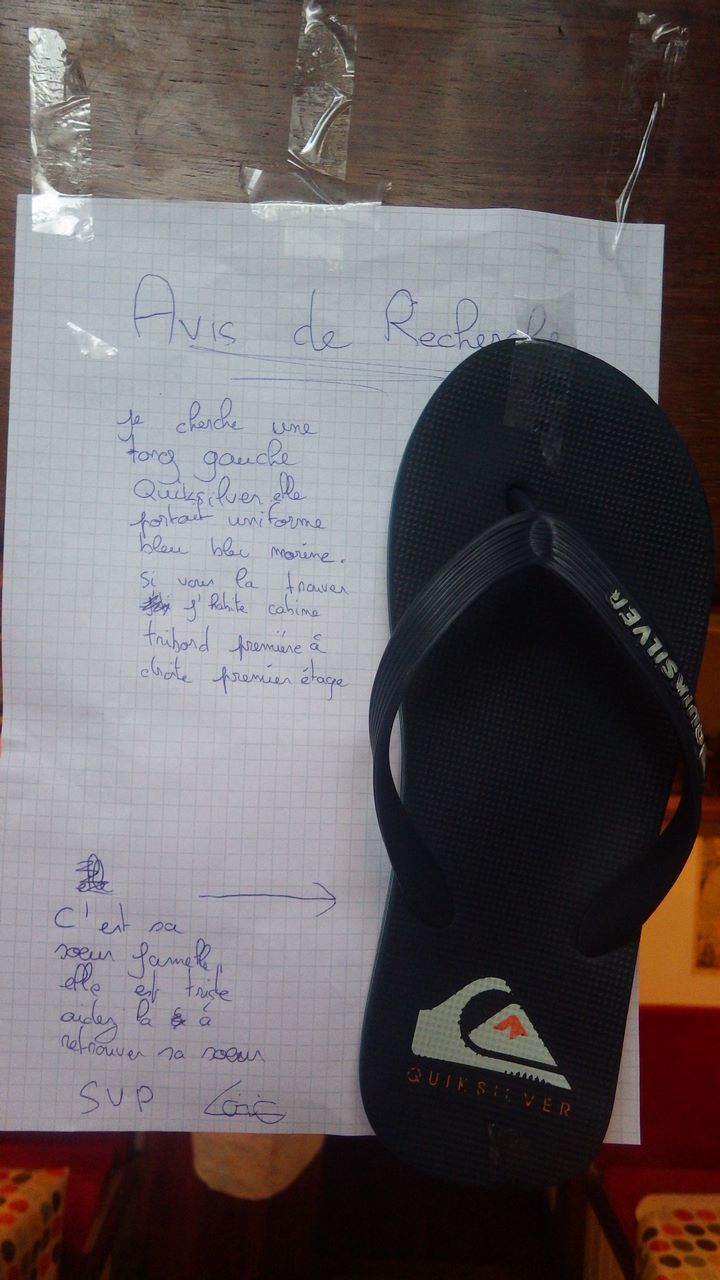 Avis de Recherche
je cherche une
tong gauche
Quiksilver elle
portait uniforme
bleu bleu marine.
Si vous la trouver
j'habite cabine
tribord première à
droite premier étage
C'est sa
soeur jumelle,
elle est triste
aidez la à
retrouver sa soeur
SVP Loïc
QUIKSILVER
QUIKSILVER